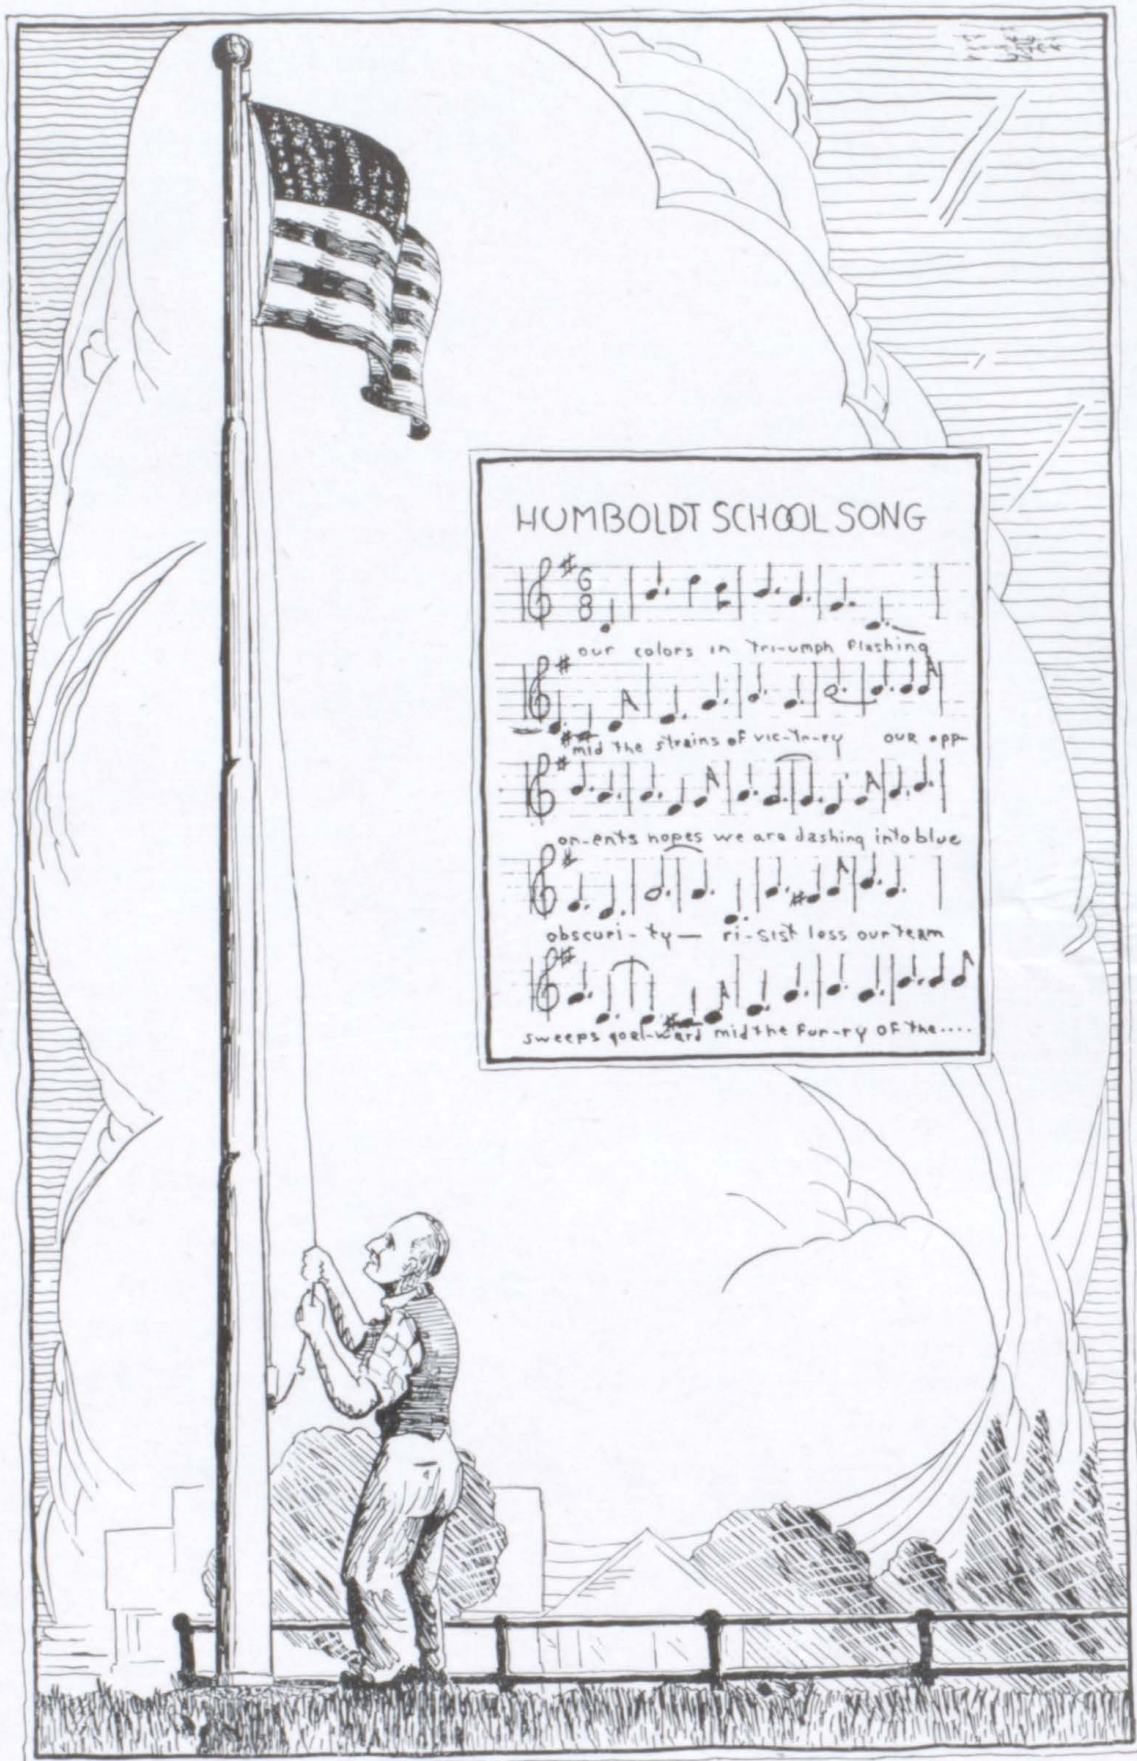 HUMBOLDT SCHOOL SONG
6
8
our colors in tri-umph flashing
mid the strains of vic-to-ry our opp-
on-ents hopes we are dashing into blue
obscuri-ty — ri-sist less our team
sweeps goal-ward mid the fur-ry of the....